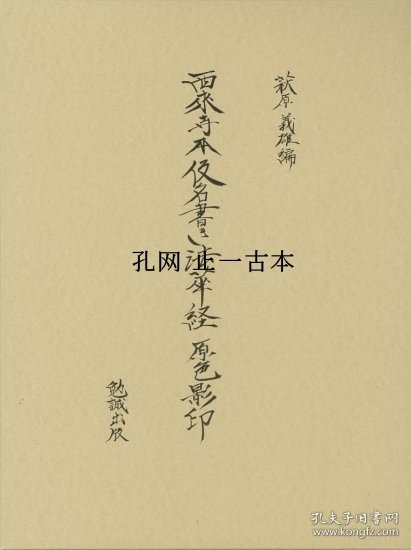 萩原義雄編
西來寺本仮名書き法華経 原色影印
勉誠出版
孔网 止一古本
孔夫子旧书网